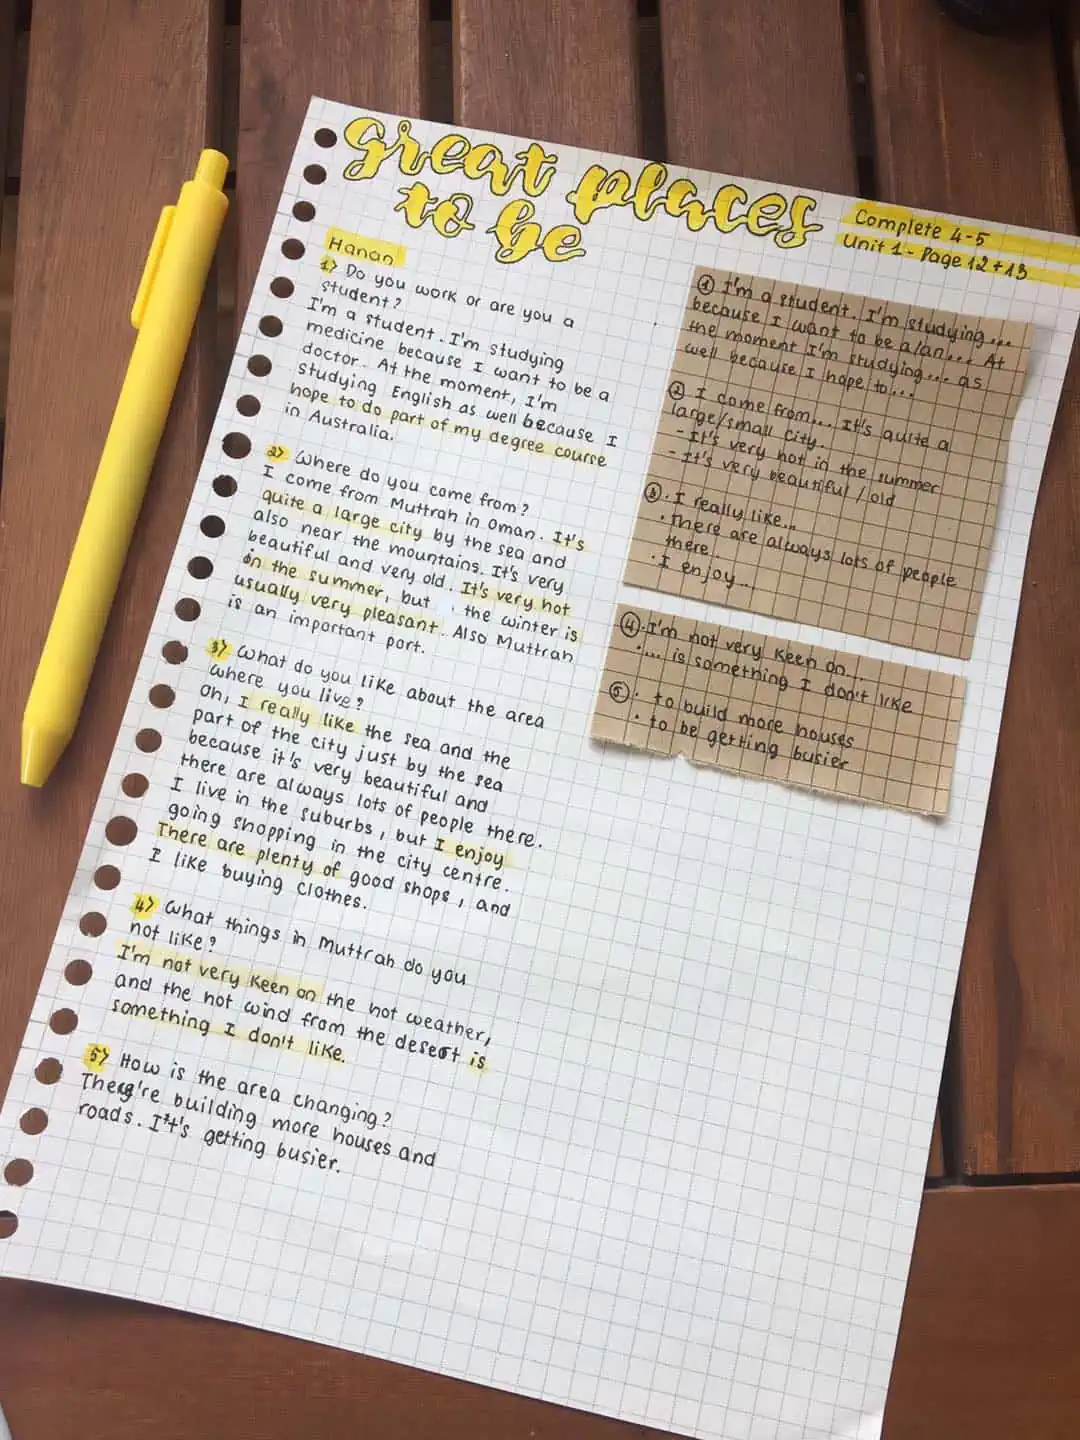 Great places
to be
Complete 4-5
Unit 1 - Page 12 + 13
Hanan
1) Do you work or are you a
student?
I'm a student. I'm studying
medicine because I want to be a
doctor. At the moment, I'm
studying English as well because I
hope to do part of my degree course
in Australia.
2) Where do you come from?
I come from Muttrah in Oman. It's
quite a large city by the sea and
also near the mountains. It's very
beautiful and very old. It's very hot
in the summer, but the winter is
usually very pleasant. Also Muttrah
is an important port.
3) What do you like about the area
where you live?
Oh, I really like the sea and the
part of the city just by the sea
because it's very beautiful and
there are always lots of people there.
I live in the suburbs, but I enjoy
going shopping in the city centre.
There are plenty of good shops, and
I like buying clothes.
4) What things in Muttrah do you
not like?
I'm not very keen on the hot weather,
and the hot wind from the desert is
something I don't like.
5) How is the area changing?
They're building more houses and
roads. It's getting busier.
1 I'm a student. I'm studying...
because I want to be a/an... At
the moment I'm studying... as
well because I hope to...
2 I come from... It's quite a
large/small city.
- It's very hot in the summer
- It's very beautiful / old
3 · I really like...
· There are always lots of people
there..
· I enjoy...
4 · I'm not very keen on...
· ... is something I don't like
5 · to build more houses
· to be getting busier